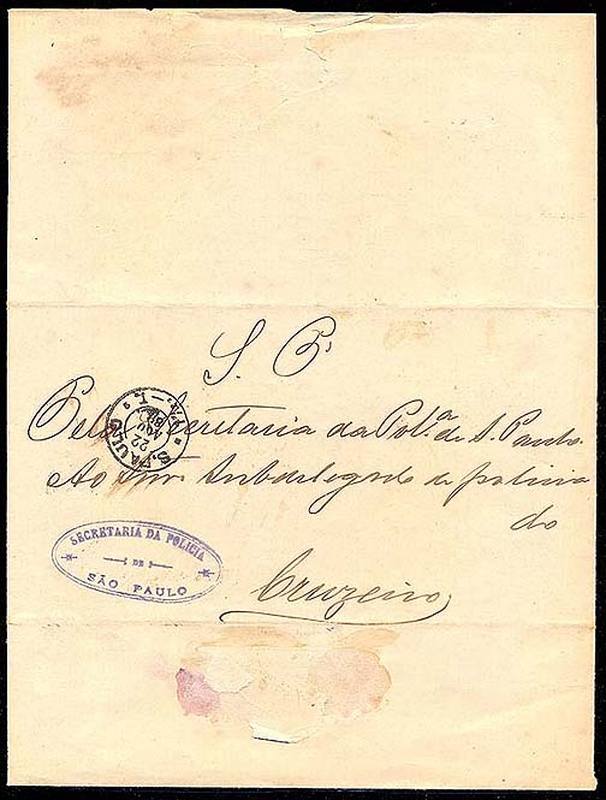 S. P.
Pela Secretaria da Pol.ª de S. Paulo.
Ao Snr. Subdelegado de policia
do
Cruzeiro
S. PAULO
22
AGO
SECRETARIA DA POLICIA
DE
SÃO PAULO